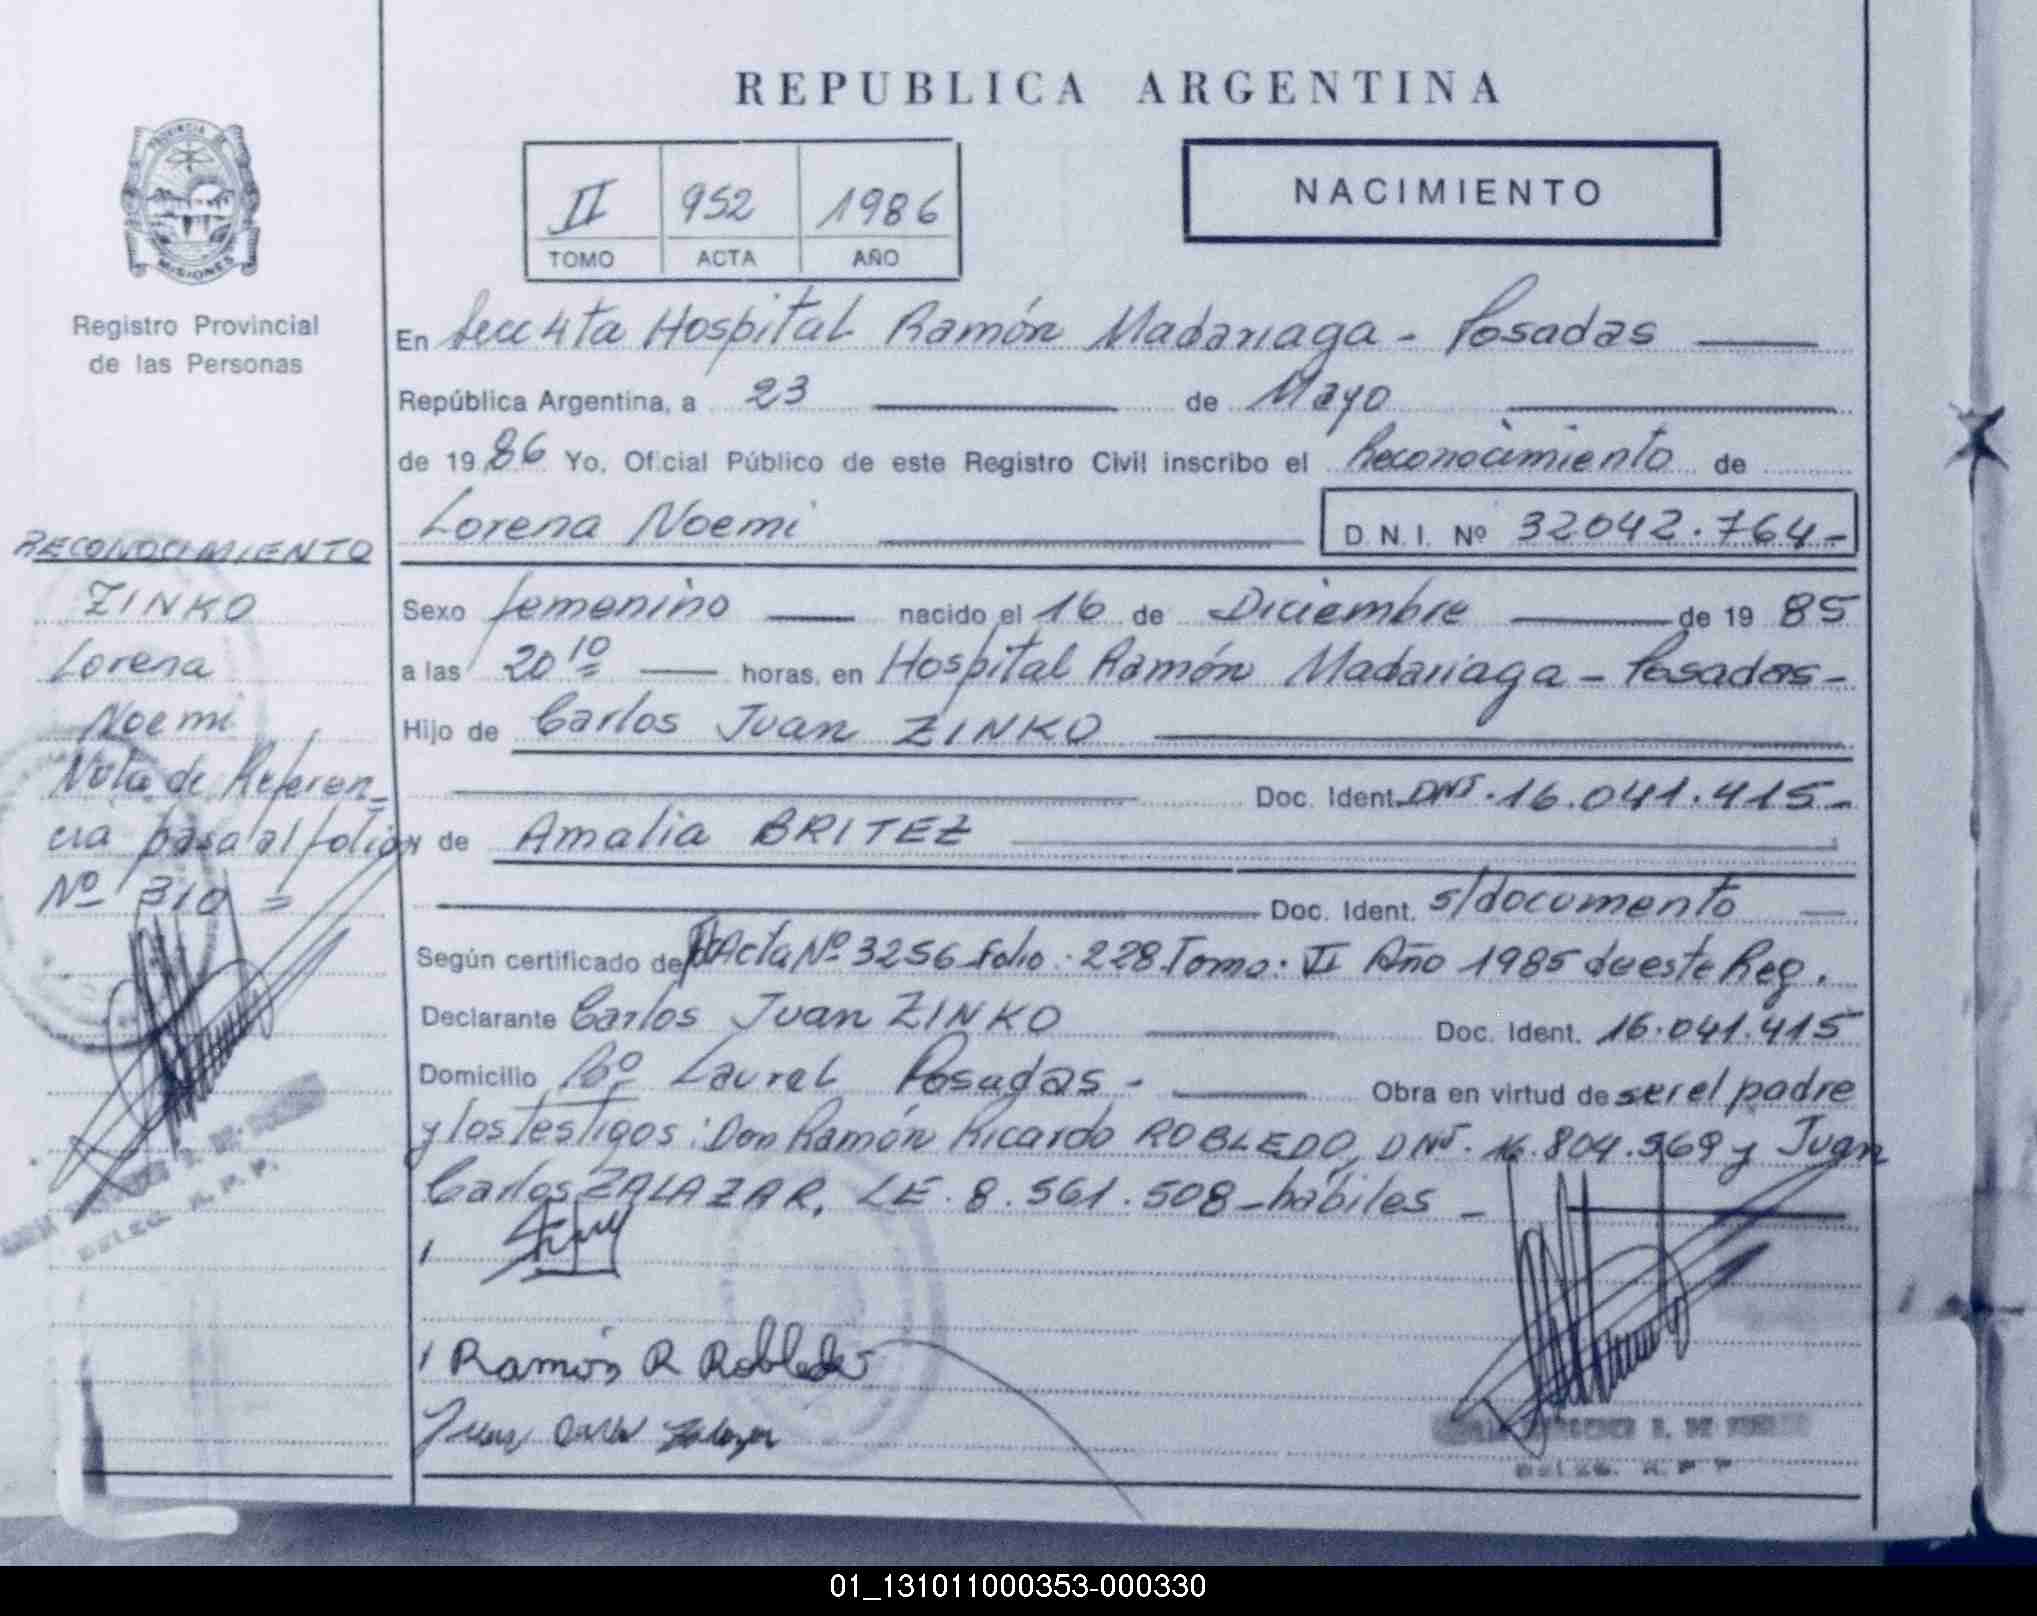 REPUBLICA ARGENTINA
PROVINCIA DE
MISIONES
Registro Provincial
de las Personas
II 952 1986
TOMO ACTA AÑO
NACIMIENTO
En Secc 4ta Hospital Ramón Madariaga - Posadas
República Argentina, a 23 de Mayo
de 1986 Yo, Oficial Público de este Registro Civil inscribo el Reconocimiento de
Lorena Noemi D.N.I. Nº 32042.764-
RECONOCIMIENTO
ZINKO
Lorena
Noemi
Nota de Referen=
cia pasa al folio
Nº 310 =
Sexo femenino nacido el 16 de Diciembre de 1985
a las 20 10 horas, en Hospital Ramón Madariaga - Posadas -
Hijo de Carlos Juan ZINKO
Doc. Ident. DNI. 16.041.415-
y de Amalia BRITEZ
Doc. Ident. s/documento
Según certificado de Acta Nº 3256 folio: 228 Tomo: II Año 1985 de este Reg.
Declarante Carlos Juan ZINKO Doc. Ident. 16.041.415
Domicilio Bº Laurel Posadas - Obra en virtud de ser el padre
y los testigos: Don Ramón Ricardo ROBLEDO, DNI. 16.804.969 y Juan
Carlos ZALAZAR. LE. 8.561.508 - hábiles -
Ramón R Robledo
Juan Carlos Zalazar
01_131011000353-000330